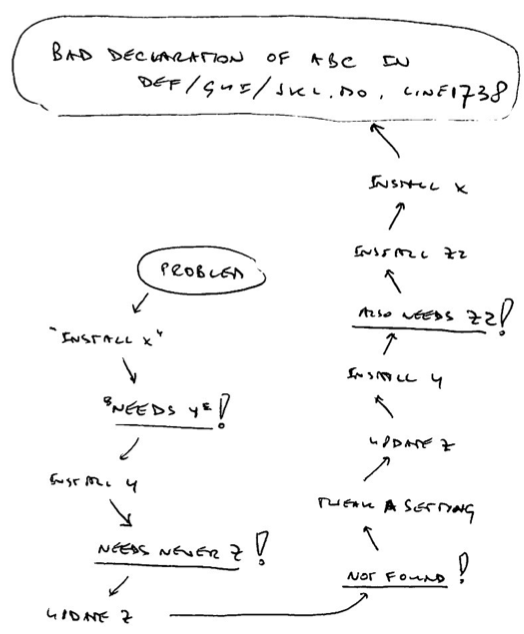 BAD DECLARATION OF ABC IN
DEF/GHI/JKL.MO, LINE1738
PROBLEM
"INSTALL X"
"NEEDS Y"!
INSTALL Y
NEEDS NEWER Z!
UPDATE Z
NOT FOUND!
TWEAK A SETTING
UPDATE Z
INSTALL Y
ALSO NEEDS Z2!
INSTALL Z2
INSTALL X